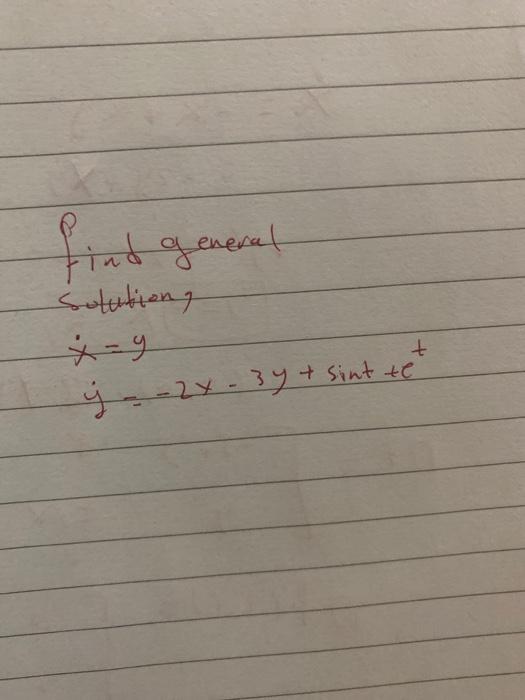 find general
solution,
ẋ = y
ẏ = -2x - 3y + sint + e^t